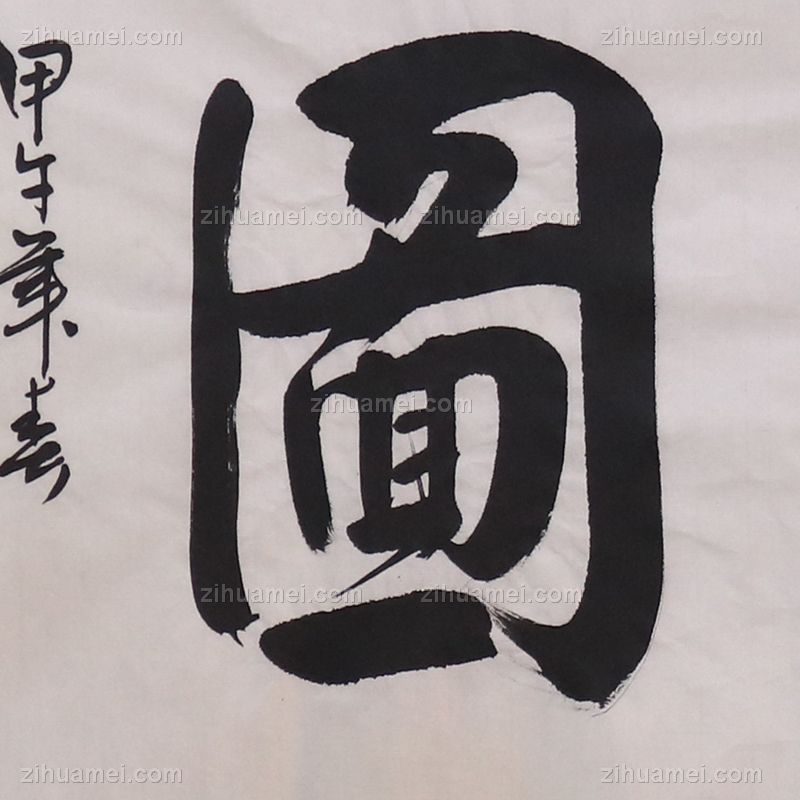 圖
甲午年春
zihuamei.com zihuamei.com
zihuamei.com zihuamei.com
zihuamei.com
zihuamei.com zihuamei.com
zihuamei.com zihuamei.com